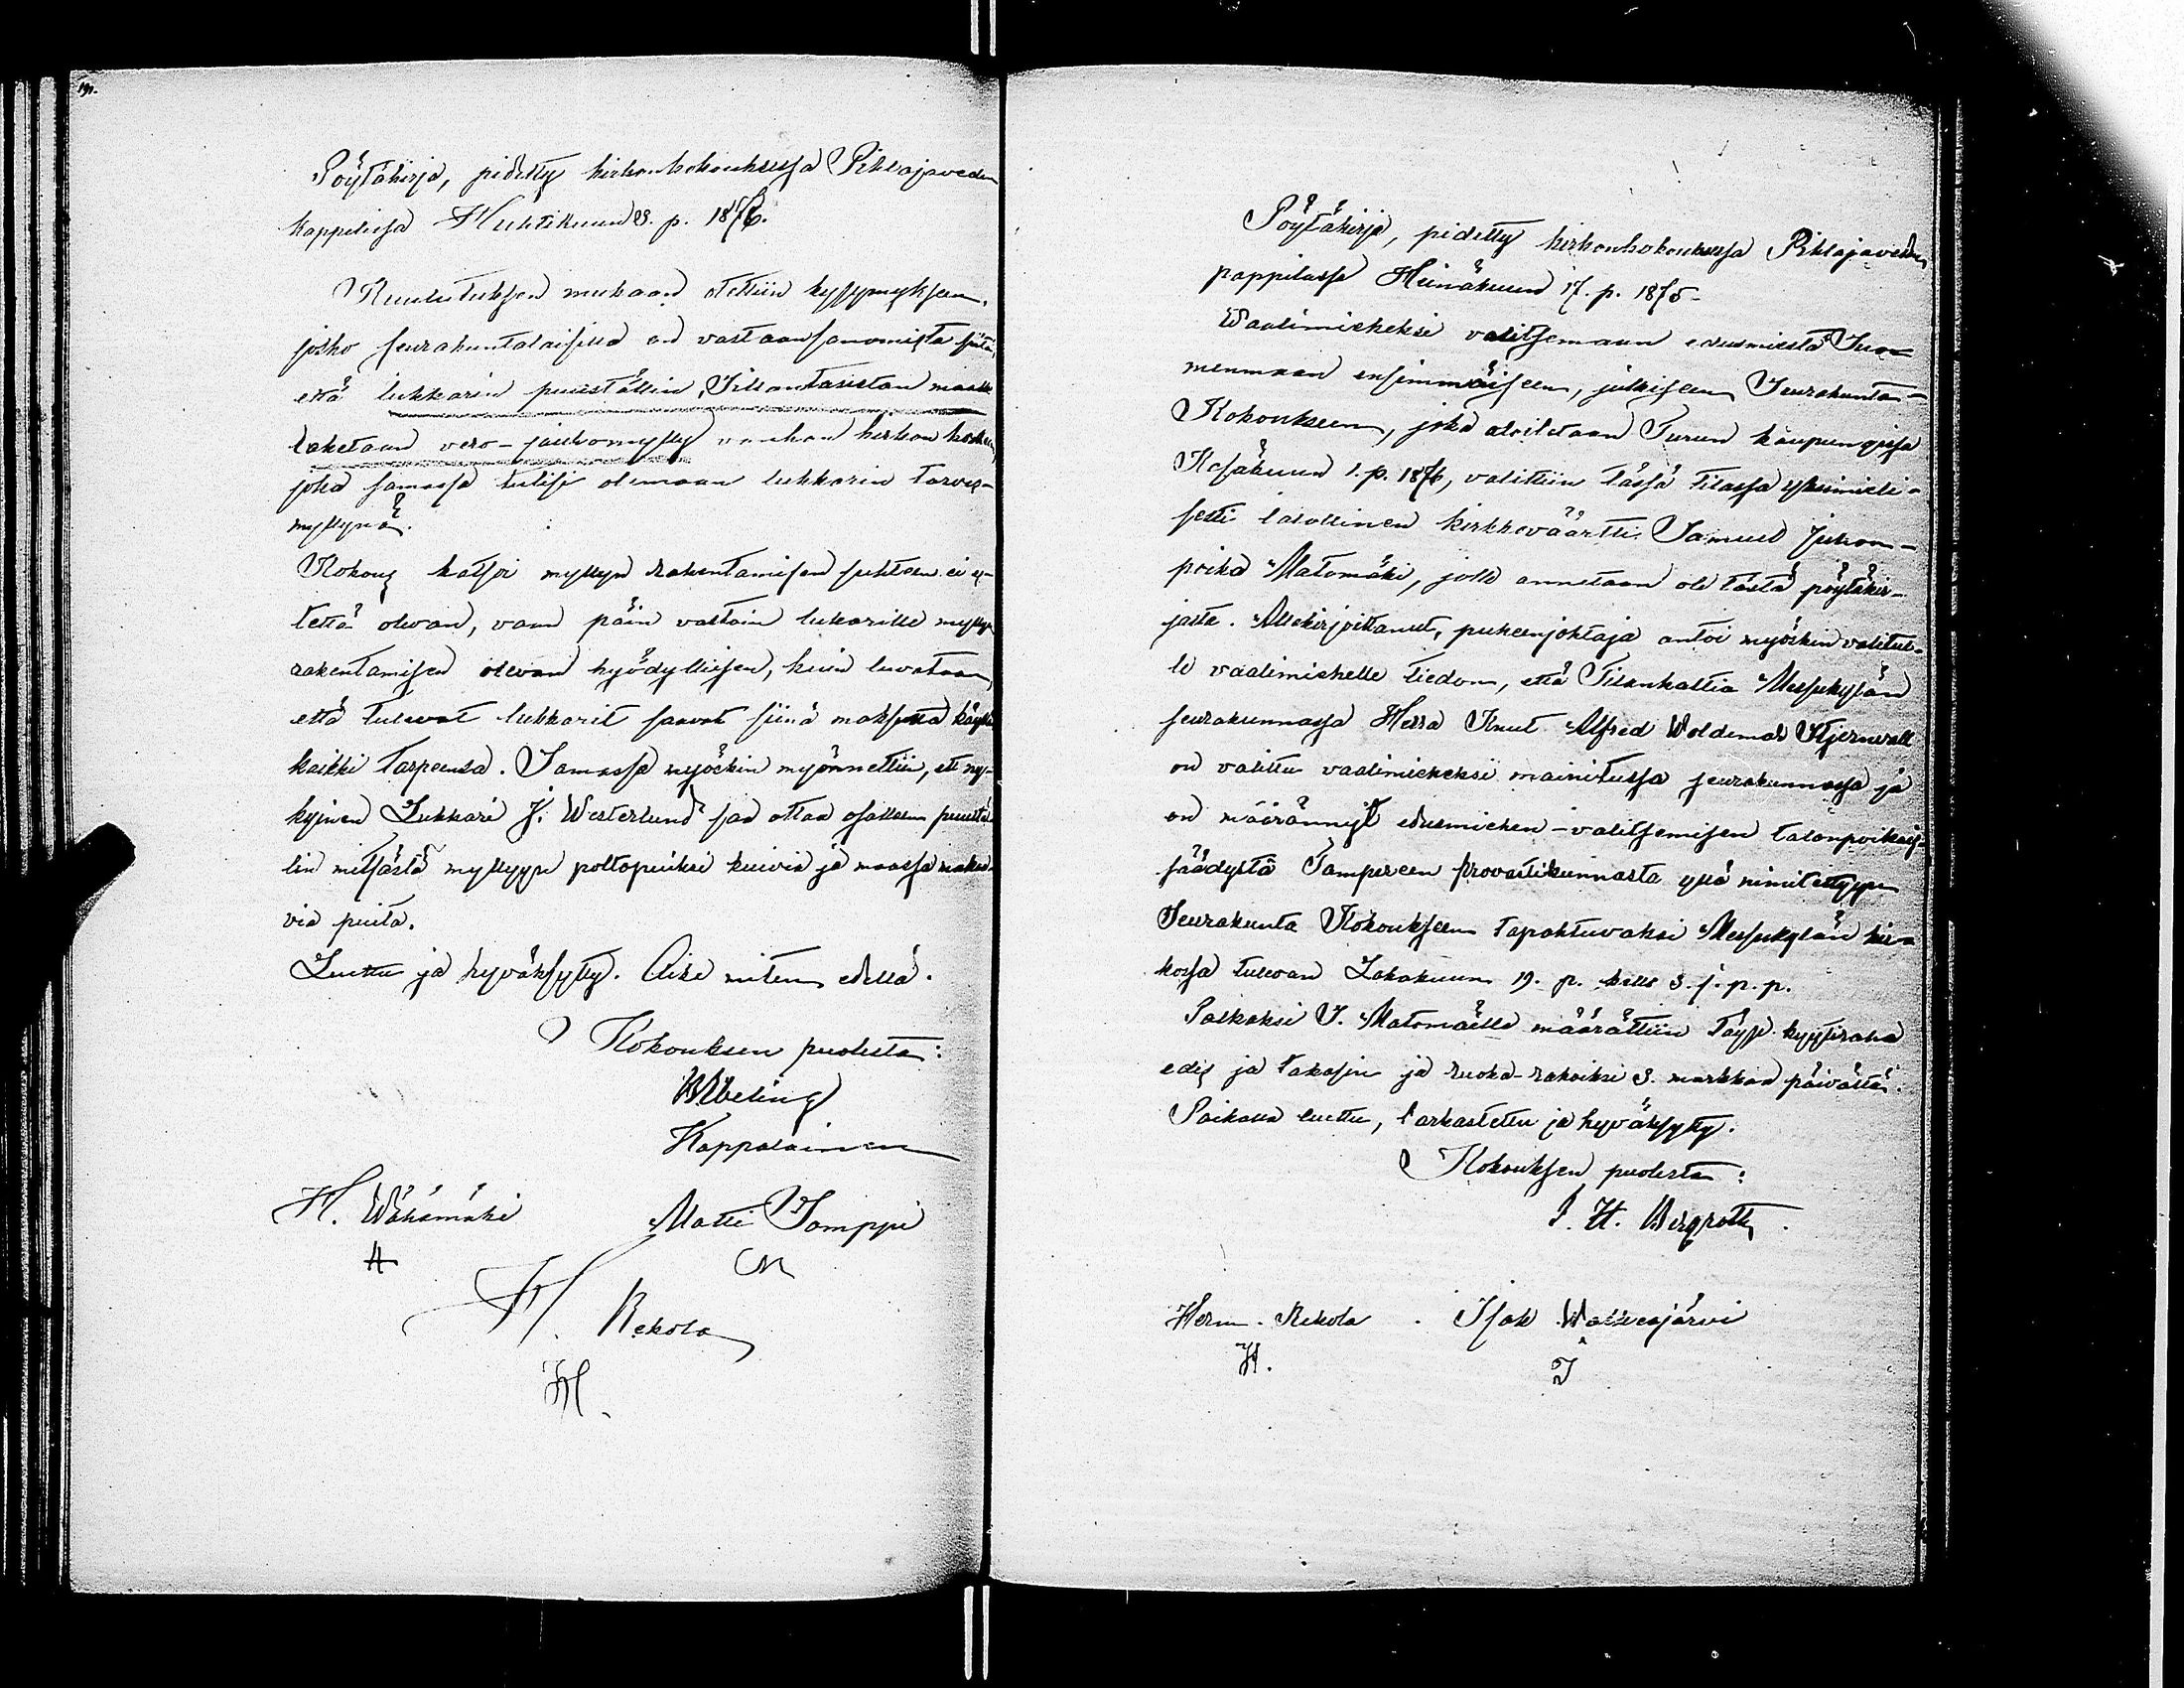 191.
Pöytäkirja, pidetty kirkonkokouksessa Pihlajaveden
kappelissa Huhtikuun 23. p. 1876.
Kuulutuksen mukaan otettiin kysymykseen,
josko seurakuntalaisilla on vastaansanomista siitä,
että lukkarin puuställin, maalle
laketaan vero-jauhomylly vanhan kirkon kosken,
joka samassa tulisi olemaan lukkarin tarves-
myllynä.
Kokous katsoi myllyn rakentamisen suhteen ei es-
tettä olevan, vaan päin vastoin lukarille myllyn
rakentamisen olevan hyödyllisen, kuin luvataan,
että tulevat lukkarit saavat siinä maksutta käyttää
kaikki tarpeensa. Samassa myöskin myönnettiin, että ny-
kyinen Lukkari J. Westerlund saa ottaa osalleen puustäl-
lin mitsästä myllyyn poltopuiksi kuivia ja maassa makaa-
via puita.
Luettu ja hyväksytty. Aika miten edellä.
Kokouksen puolesta:
Kappalainen
H. Wähämäki Matti Samppi
H M
H. Rekola
H.
Pöytäkirja, pidetty kirkonkokouksessa Pihlajaveden
pappilassa Heinäkuun 17. p. 1875.
Waalimieheksi valitsemaan edusmiestä Suo-
menmaan ensimmäiseen, julkiseen Seurakunta-
Kokoukseen, joka aloitetaan Turun kaupungissa
Kesäkuun 1. p. 1876, valittiin tässä tilassa yksimieli-
sesti talollinen kirkkoväärtti Samuel Juhon-
poika Matomäki, jolle annetaan ote tästä pöytäkir-
jasta. Allekirjoittanut, puheenjohtaja antoi myöskin valitul-
le vaalimiehelle tiedon, että Tilanhaltia Messukylän
seurakunnassa Herra Knut Alfred Woldemar Stjernvall
on valittu vaalimieheksi mainitussa seurakunnassa ja
on määrännyt edusmiehen-valitsemisen talonpoikais-
säädystä Tampereen provastikunnasta yllä nimitettyyn
Seurakunta Kokoukseen tapahtuvaksi Messukylän kir-
kossa tulevan Lokakuun 19. p. kello 3. j. p. p.
Palkaksi S. Matomäelle määrättiin täysi kyytiraha
edes ja takasin ja ruoka-rahoiksi 3. markkaa päivältä.
Paikalla luettu, tarkastettu ja hyväksytty.
Kokouksen puolesta:
J. H. Bergroth.
Herm. Rekola. Isak Walkeajärvi
H. I